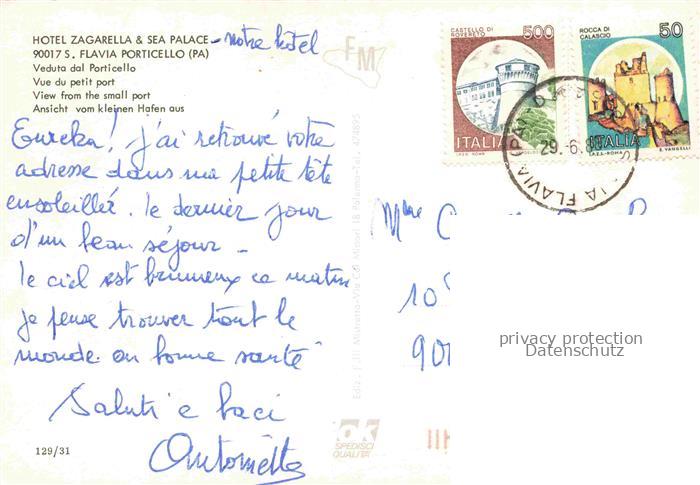 HOTEL ZAGARELLA & SEA PALACE - notre hotel
90017 S. FLAVIA PORTICELLO (PA)
Veduta dal Porticello
Vue du petit port
View from the small port
Ansicht vom kleinen Hafen aus
Eureka! j'ai retrouvé votre
adresse dans ma petite tête
ensoleillée. le dernier jour
d'un beau séjour -
le ciel est brumeux ce matin
je pense trouver tout le
monde en bonne santé
Saluti e baci
Antonietta
129/31
FM
OK
SPEDISCI
QUALITÀ
CASTELLO DI
ROVERETO
500
ITALIA
I.P.Z.S. ROMA
ROCCA DI
CALASCIO
50
ITALIA
I.P.Z.S. - ROMA
E. VANGELLI
29.6.8
FLAVIA (PA)
Mme
10
90
privacy protection
Datenschutz